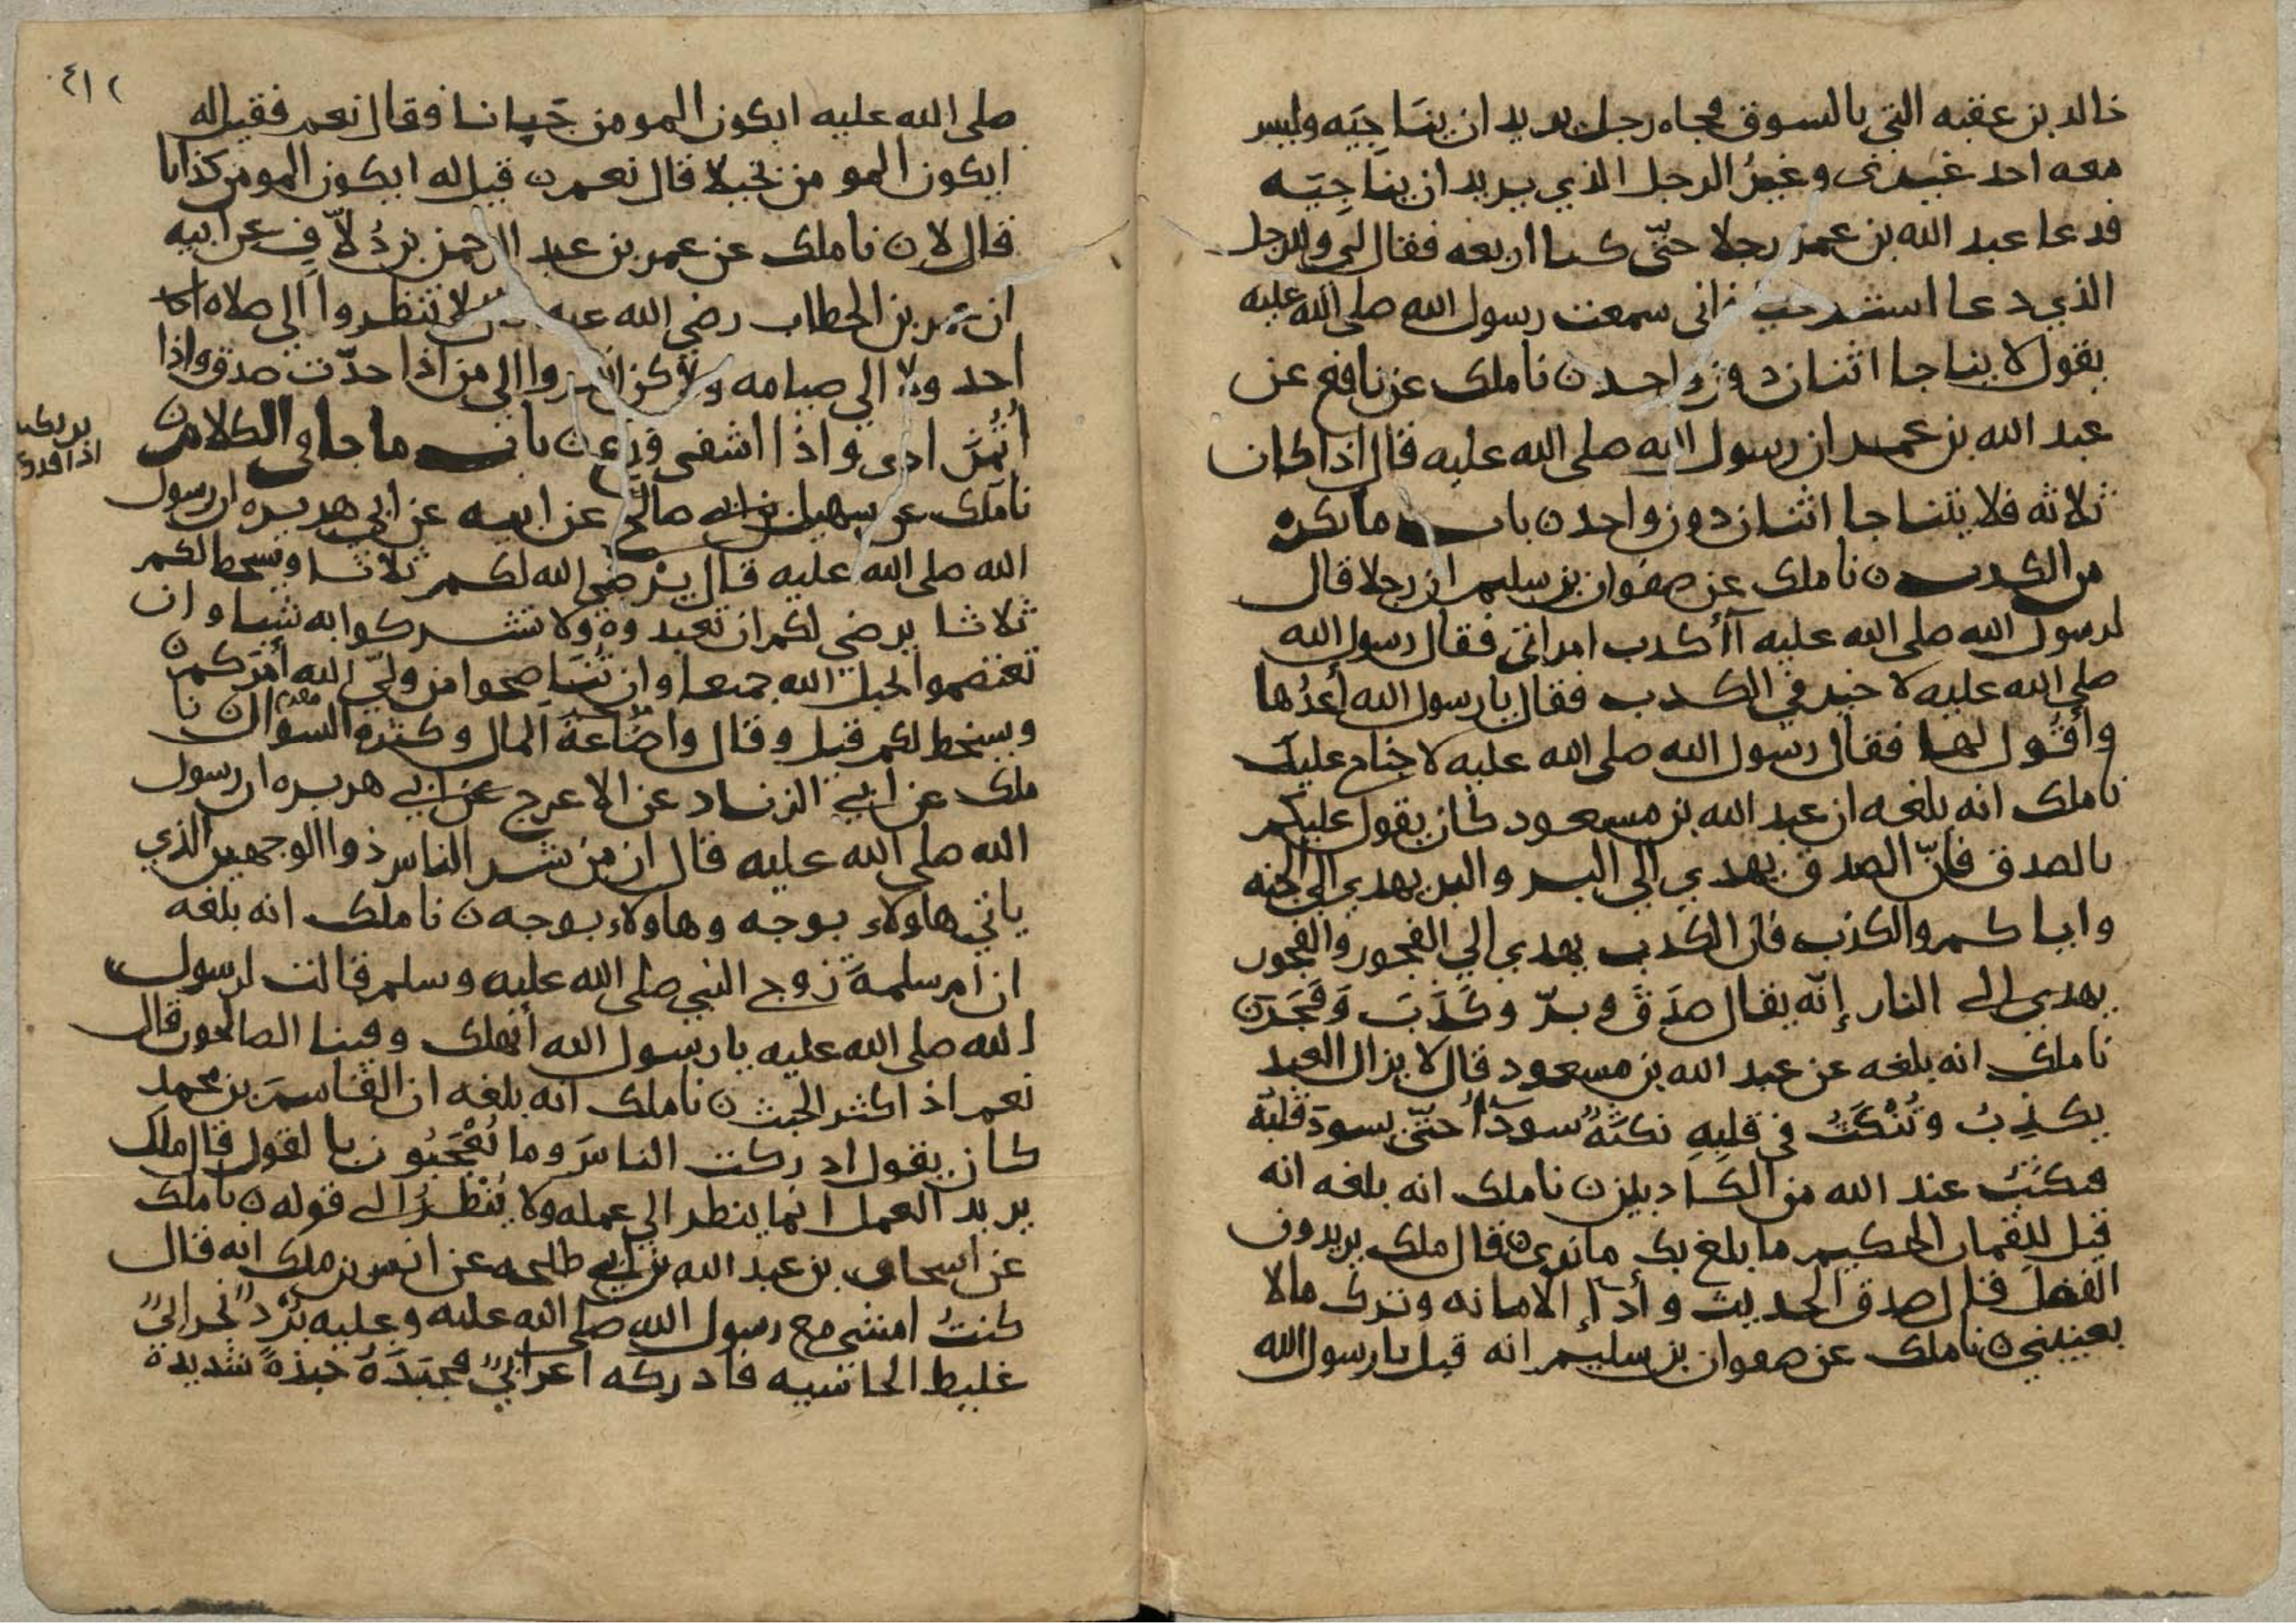 خالد بن عقبه التي بالسوق فجاه رجل يريد ان يناجيه وليس
معه احد غيرى وغير الرجل الذي يريد ان يناجيه
فدعا عبد الله بن عمر رجلا حتى كنا اربعه فقال لي والرجل
الذي دعا فانى سمعت رسول الله صلى الله عليه
يقول لا يتناجا اثنان دون واحد ن نا ملك عن نافع عن
عبد الله بن عمر ان رسول الله صلى الله عليه قال اذا كان
ثلاثه فلا يتناجا اثنان دون واحد ن باب ما يكره
من الكذب ن نا ملك عن صفوان بن سليم ان رجلا قال
لرسول الله صلى الله عليه أأكذب امراتي فقال رسول الله
صلى الله عليه لا خير في الكذب فقال يا رسول الله أعدُها
وأقول لها فقال رسول الله صلى الله عليه لا جناح عليك
نا ملك انه بلغه ان عبد الله بن مسعود كان يقول عليكم
بالصدق فانّ الصدق يهدي الي البر والبر يهدي الي الجنه
واياكم والكذب فان الكذب يهدي الي الفجور والفجور
يهدي الى النار إنّه يقال صَدَقَ وبرّ وكَذَبَ وَفَجَرَ ن
نا ملك انه بلغه عن عبد الله بن مسعود قال لا يزال العبد
يكذِبُ وتُنْكَتُ في قلبِهِ نكتَةٌ سودآُ حتّى يسودّ قلبُه
فيكتَبُ عند الله من الكاذبين ن نا ملك انه بلغه انه
قيل للقمان الحكيم ما بلغ بك ما نرى ن قال ملك يريدون
الفضل قال صدق الحديث وأدآ الامانه وترك ما لا
يعنيني ن نا ملك عن صفوان بن سليم انه قيل يا رسول الله
٤١٢
صلى الله عليه ايكون المومن جَبانا فقال نعم فقيل له
ايكون المومن بخيلا قال نعم ن قيل له ايكون المومن كذابا
قال لا ن نا ملك عن عمر بن عبد الرحمن بن دُلاّف عن ابيه
ان عمر بن الخطاب رضي الله عنه قال لا تنظروا الي صلاه
احد ولا الي صيامه ولكن انظروا الي من اذا حدّث صدق واذا
اُئتُمِنَ ادى واذا اشفى ورع ن باب ما جا في الكلام ن
نا ملك عن سهيل بن ابي صالح عن ابيه عن ابي هريره ان رسول
الله صلى الله عليه قال يَرْضي الله لكم ثلاثا ويسخط لكم
ثلاثا يرضي لكم ان تعبدوه ولا تشركوا به شيا وان
تعتصموا بحبل الله جمعا وان تُنَاصحوا من وليّ الله أمرَكم ن
ويسخط لكم قيل وقال واضاعةَ المال وكثرة السوال ن نا
ملك عن ابي الزناد عن الاعرج عن ابي هريره ان رسول
الله صلى الله عليه قال ان من شر الناس ذوا الوجهين الذي
ياتي هاولاء بوجه وهاولاء بوجه ن نا ملك انه بلغه
ان ام سلمة زوج النبي صلى الله عليه وسلم قالت لرسول
الله صلى الله عليه يا رسول الله أنهلك وفينا الصالحون قال
نعم اذ اكثر الخبث ن نا ملك انه بلغه ان القاسمَ بن محمد
كان يقول ادركت الناسَ وما يُعْجَبُون بالقول قال ملك
يريد العمل انما ينظر الي عمله ولا يُنْظرُ الى قوله ن نا ملك
عن اسحاق بن عبد الله بن ابي طلحه عن انس بن ملك انه قال
كنتُ امشي مع رسول الله صلى الله عليه وعليه بُرْدٌ نجراني
غليط الحاشيه فادركه اعرابيٌ فجبَذَهُ جبذةً شديدة